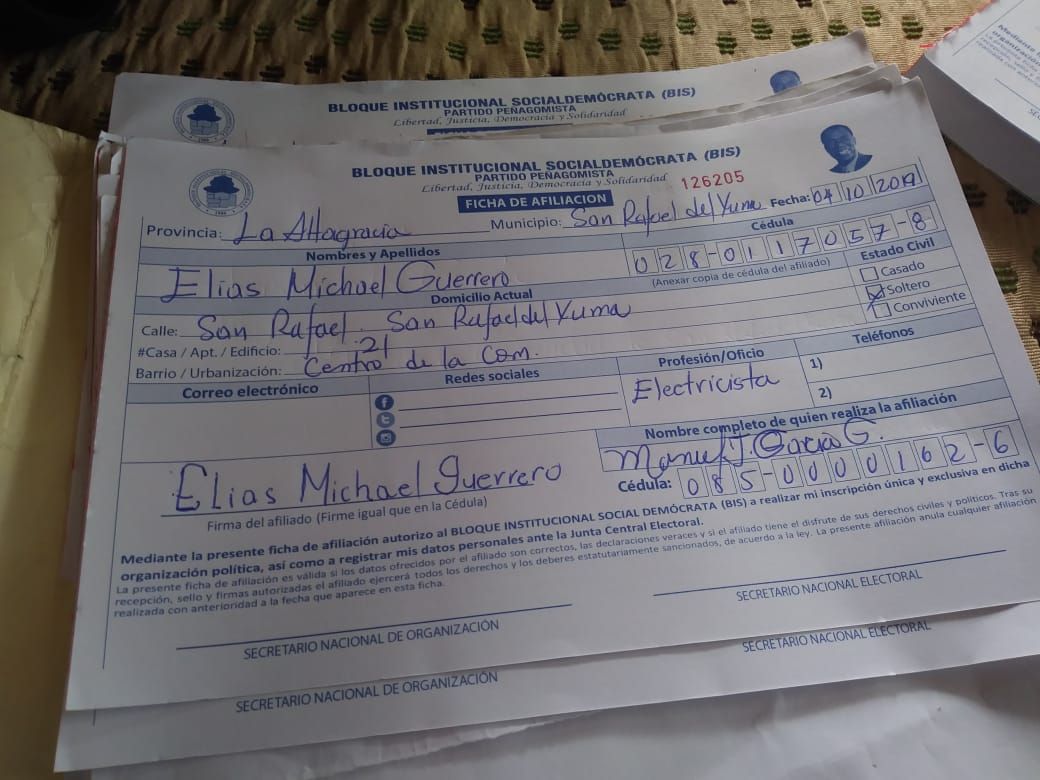 BLOQUE INSTITUCIONAL SOCIALDEMÓCRATA (BIS)
PARTIDO PEÑAGOMISTA
Libertad, Justicia, Democracia y Solidaridad
BLOQUE INSTITUCIONAL SOCIALDEMÓCRATA (BIS)
PARTIDO PEÑAGOMISTA
Libertad, Justicia, Democracia y Solidaridad 126205
FICHA DE AFILIACION
Provincia: La Altagracia Municipio: San Rafael del Yuma Fecha: 04/10/2019
Nombres y Apellidos Cédula
Elias Michael Guerrero 028-0117057-8
(Anexar copia de cédula del afiliado) Estado Civil
Domicilio Actual Casado
Calle: San Rafael. San Rafael del Yuma Soltero
#Casa / Apt. / Edificio: #21 Conviviente
Barrio / Urbanización: Centro de la Com.
Correo electrónico Redes sociales Profesión/Oficio Teléfonos
Electricista 1)
2)
Nombre completo de quien realiza la afiliación
Manuel J. Garcia G.
Elias Michael Guerrero Cédula: 085-0000162-6
Firma del afiliado (Firme igual que en la Cédula)
Mediante la presente ficha de afiliación autorizo al BLOQUE INSTITUCIONAL SOCIAL DEMÓCRATA (BIS) a realizar mi inscripción única y exclusiva en dicha
organización política, así como a registrar mis datos personales ante la Junta Central Electoral.
La presente ficha de afiliación es válida si los datos ofrecidos por el afiliado son correctos, las declaraciones veraces y si el afiliado tiene el disfrute de sus derechos civiles y políticos. Tras su
recepción, sello y firmas autorizadas el afiliado ejercerá todos los derechos y los deberes estatutariamente sancionados, de acuerdo a la ley. La presente afiliación anula cualquier afiliación
realizada con anterioridad a la fecha que aparece en esta ficha.
SECRETARIO NACIONAL DE ORGANIZACIÓN SECRETARIO NACIONAL ELECTORAL
SECRETARIO NACIONAL DE ORGANIZACIÓN SECRETARIO NACIONAL ELECTORAL